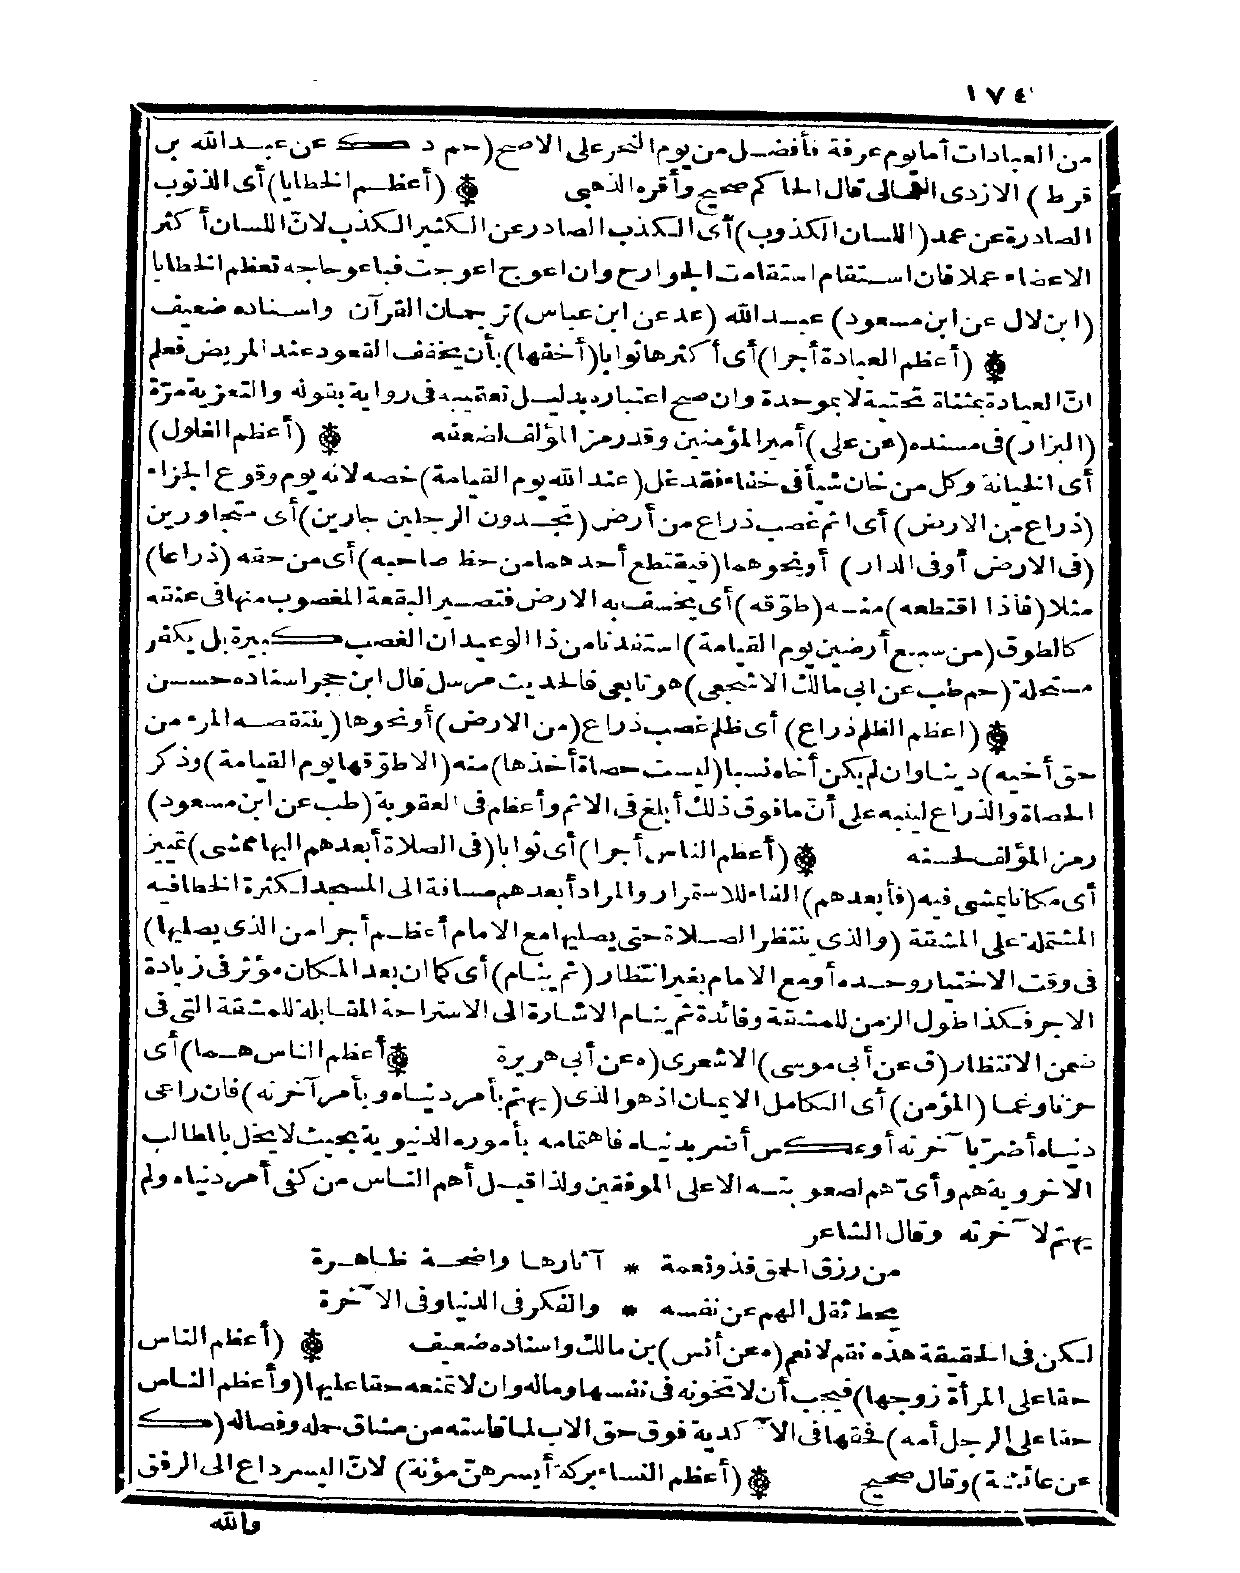 ١٧٤
من العبادات أما يوم عرفة فأفضل من يوم النحر على الاصح (حم د ك عن عبد الله بن
قرط) الازدى الثمالى قال الحاكم صحيح وأقره الذهبى (أعظم الخطايا) أى الذنوب
الصادرة عن عمد (اللسان الكذوب) أى الكذب الصادر عن الكثير الكذب لانّ اللسان أكثر
الاعضاء عملا فان استقام استقامت الجوارح وان اعوج اعوجت فباعوجاجه تعظم الخطايا
(ابن لال عن ابن مسعود) عبد الله (عد عن ابن عباس) ترجمان القرآن واسناده ضعيف
(أعظم العيادة أجرا) أى أكثرها ثوابا (أخفها) بأن يخفف القعود عند المريض فعلم
انّ العيادة بمثناة تحتية لا بموحدة وان صح اعتباره بدليل تعقيبه فى رواية بقوله والتعزية مرّة
(البزار) فى مسنده (عن على) أمير المؤمنين وقد رمز المؤلف لضعفه (أعظم الغلول)
أى الخيانة وكل من خان شيأ فى خفاء فقد غل (عند الله يوم القيامة) خصه لانه يوم وقوع الجزاء
(ذراع من الارض) أى اثم غصب ذراع من أرض (تجدون الرجلين جارين) أى متجاورين
(فى الارض أو فى الدار) أو نحوهما (فيقتطع أحدهما من حظ صاحبه) أى من حقه (ذراعا)
مثلا (فاذا اقتطعه) منه (طوّقه) أى يخسف به الارض فتصير البقعة المغصوب منها فى عنقه
كالطوق (من سبع أرضين يوم القيامة) استفدنا من ذا الوعيد ان الغصب كبيرة بل يكفر
مستحله (حم طب عن ابى مالك الاشجعى) هو تابعى فالحديث مرسل قال ابن حجر اسناده حسن
(اعظم الظلم ذراع) أى ظلم غصب ذراع (من الارض) أو نحوها (ينتقصه المرء من
حق أخيه) دينا وان لم يكن أخاه نسبا (ليست حصاة أخذها) منه (الا طوّقها يوم القيامة) وذكر
الحصاة والذراع لينبه على أنّ ما فوق ذلك أبلغ فى الاثم وأعظم فى العقوبة (طب عن ابن مسعود)
رمز المؤلف لحسنه (أعظم الناس أجرا) أى ثوابا (فى الصلاة أبعدهم اليها ممشى) تمييز
أى مكانا يمشى فيه (فأبعدهم) الفاء للاستمرار والمراد أبعدهم مسافة الى المسجد لكثرة الخطا فيه
المشتملة على المشقة (والذى ينتظر الصلاة حتى يصليها مع الامام أعظم أجرا من الذى يصليها)
فى وقت الاختيار وحده أو مع الامام بغير انتظار (ثم ينام) أى كما ان بعد المكان مؤثر فى زيادة
الاجر فكذا طول الزمن للمشقة وفائدة ثم ينام الاشارة الى الاستراحة المقابلة للمشقة التى فى
ضمن الانتظار (ق عن أبى موسى) الاشعرى (ه عن أبى هريرة أعظم الناس هما) أى
حزنا وغما (المؤمن) أى الكامل الايمان اذ هو الذى (يهتم بأمر دنياه وبأمر آخرته) فان راعى
دنياه أضرّ بآخرته أو عكس أضر بدنياه فاهتمامه بأموره الدنيوية بحيث لا يخل بالمطالب
الاخروية هم وأىّ هم لصعوبته الا على الموفقين ولذا قيل أهم الناس من كفى أمر دنياه ولم
يهتم لآخرته وقال الشاعر
من رزق الحمق فذو نعمة * آثارها واضحة ظاهرة
يحط ثقل الهم عن نفسه * والفكر فى الدنيا وفى الآخرة
لكن فى الحقيقة هذه نقم لا نعم (ه عن أنس) بن مالك واسناده ضعيف (أعظم الناس
حقا على المرأة زوجها) فيجب أن لا تخونه فى نفسها وماله وان لا تمنعه حقا عليها (وأعظم الناس
حقا على الرجل أمه) فحقها فى الآكدية فوق حق الاب لما قاسته من مشاق حمله وفصاله (ك
عن عائشة) وقال صحيح (أعظم النساء بركة أيسرهنّ مؤنة) لانّ اليسر داع الى الرفق
والله